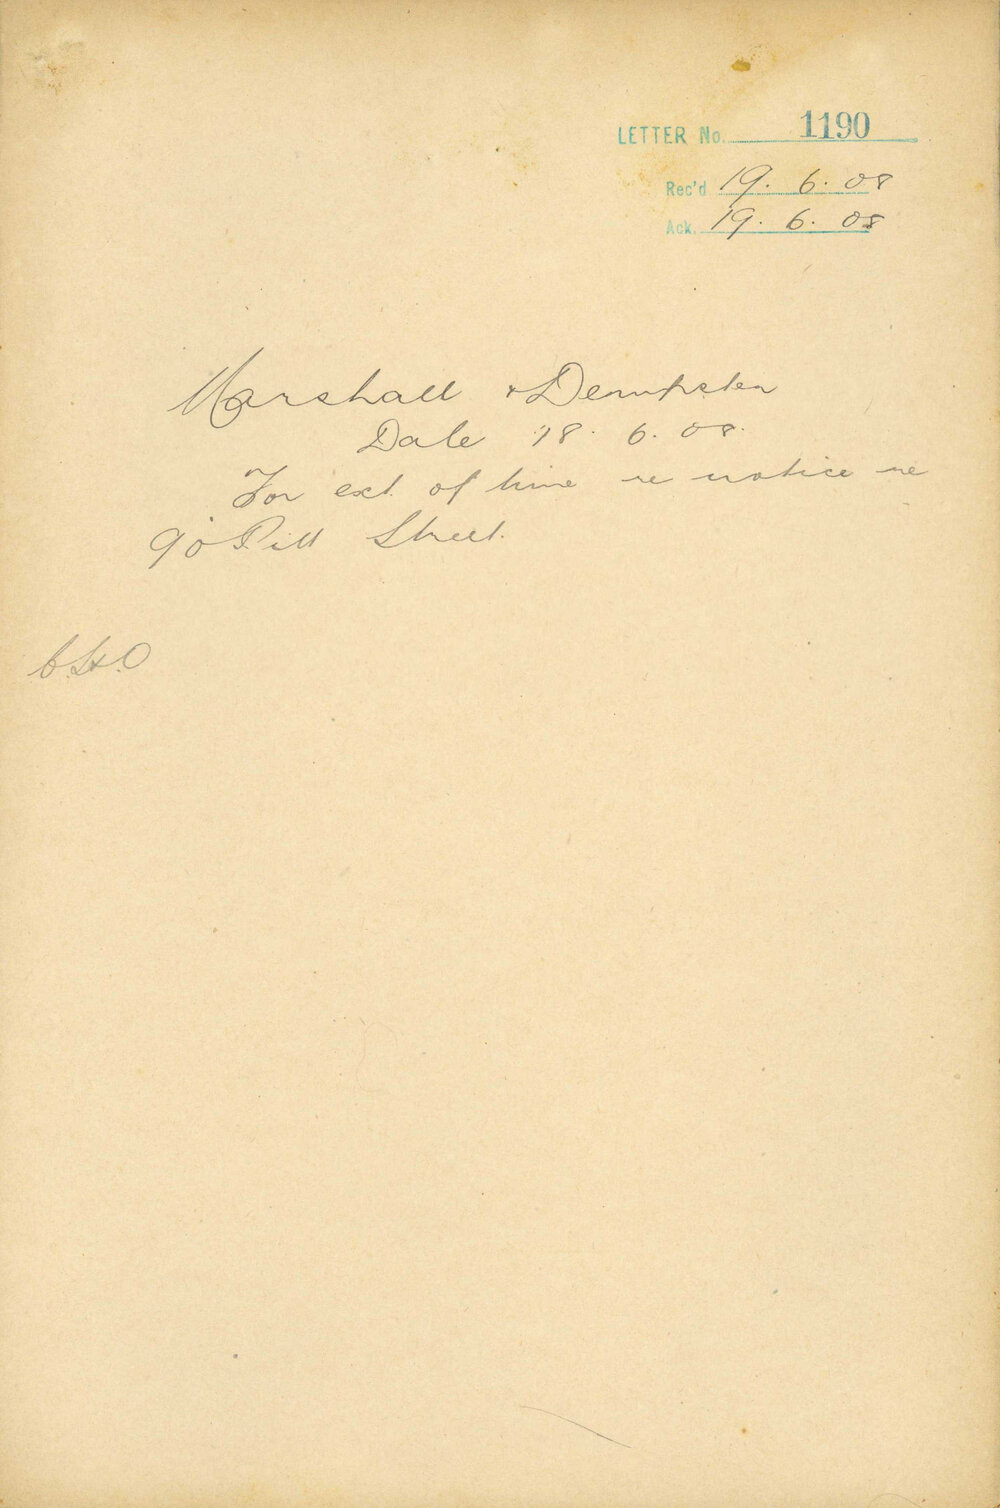 LETTER No. 1190
Rec'd 19. 6. 08
Ack. 19. 6. 08
Marshall & Dempster
Date 18. 6. 08.
For ext. of time re notice re
90 Pitt Street.
C.H.O